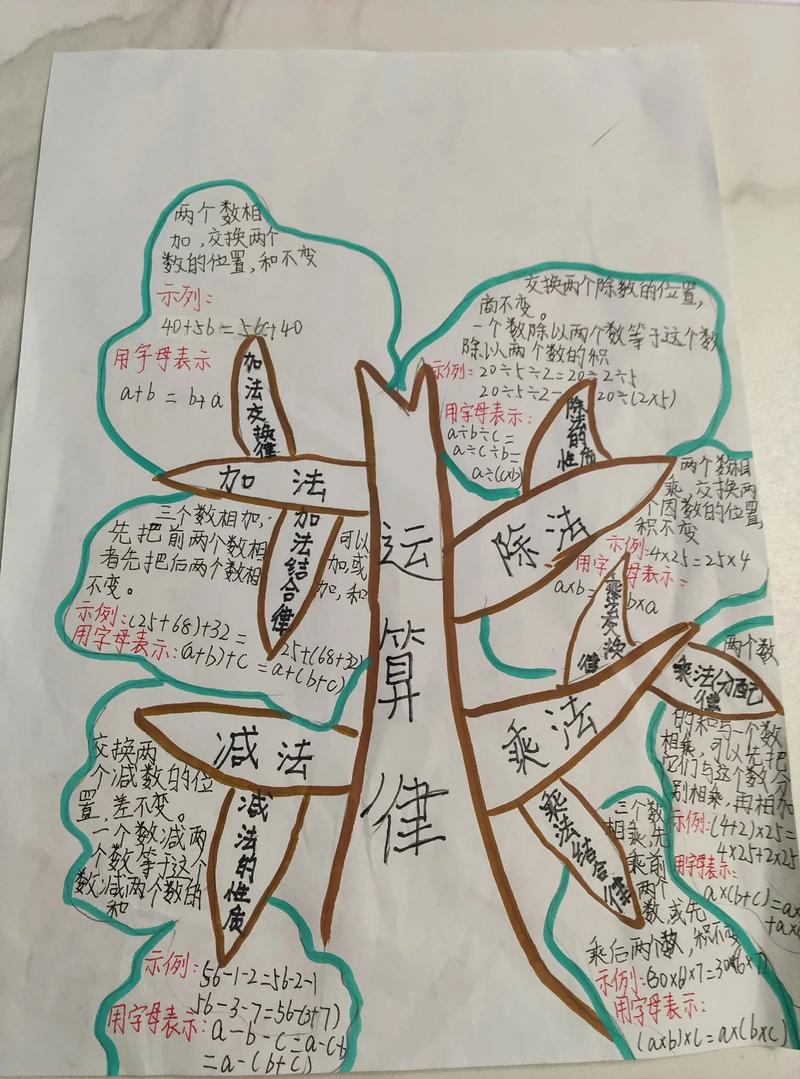 运算律
两个数相
加,交换两个
数的位置,和不变
示列:
40+56=56+40
用字母表示
a+b=b+a
加法交换律
加法
三个数相加,可以
先把前两个数相加,或
者先把后两个数相加,和
不变。
示例:(25+68)+32=
25+(68+32)
用字母表示:(a+b)+c=a+(b+c)
加法结合律
减法
交换两
个减数的位
置,差不变。
一个数减两
个数等于这个
数减两个数的
和
减法的性质
示例:56-1-2=56-2-1
56-3-7=56-(3+7)
用字母表示:a-b-c=a-c-b
=a-(b+c)
交换两个除数的位置,
商不变。
一个数除以两个数等于这个数
除以两个数的积
示例:20÷5÷2=20÷2÷5
20÷5÷2=20÷(2×5)
用字母表示:
a÷b÷c=
a÷c÷b=
a÷(c×b)
除法的性质
除法
两个数相
乘,交换两
个因数的位置,
积不变
示例:4×25=25×4
用字母表示:
a×b=b×a
乘法交换律
乘法
乘法分配律
两个数
的和与一个数
相乘,可以先把
它们与这个数分
别相乘,再相加
示例:(4+2)×25=
4×25+2×25
用字母表示:
a×(b+c)=a×
+a×
乘法结合律
三个数
相乘,先
乘前
两个
数,或先
乘后两个数,积不变
示例:(30×6)×7=30×(6×7)
用字母表示:
(a×b)×c=a×(b×c)